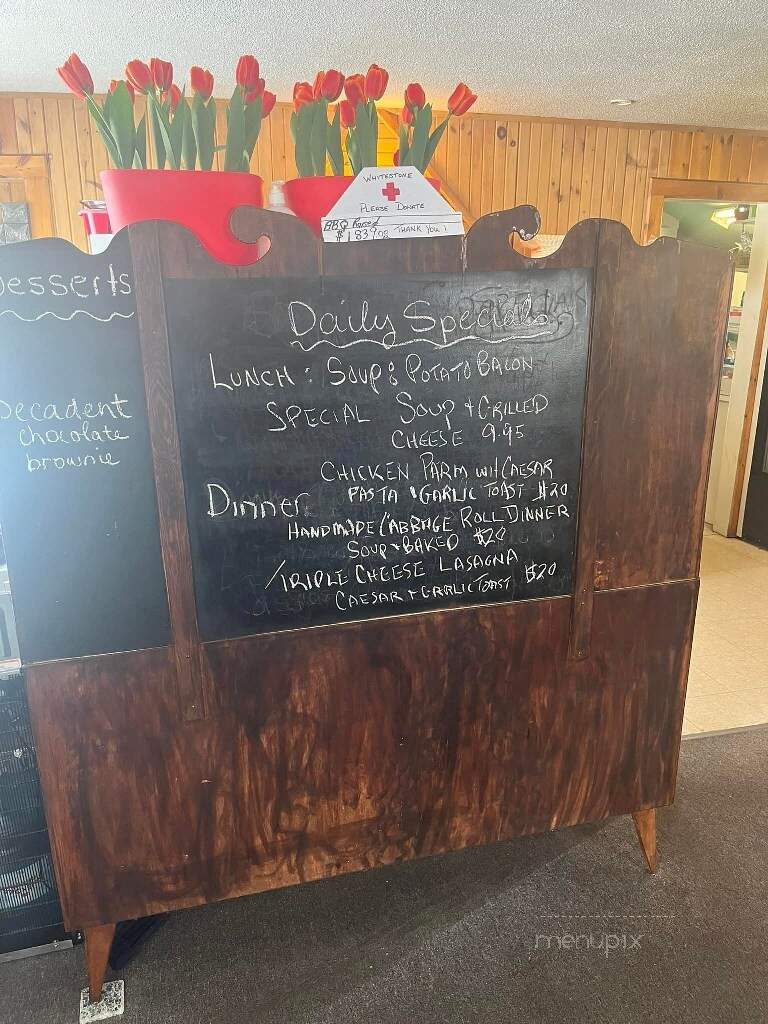 WHITESTONE
PLEASE DONATE
BBQ Raised
THANK YOU!
Desserts
Decadent
chocolate
brownie
Daily Specials
LUNCH: SOUP: POTATO BACON
SPECIAL SOUP + GRILLED
CHEESE 9.95
CHICKEN PARM wit CAESAR
Dinner PASTA + GARLIC TOAST $20
HANDMADE CABBAGE ROLL DINNER
SOUP + BAKED $20
TRIPLE CHEESE LASAGNA
CAESAR + GARLIC TOAST $20
menupix